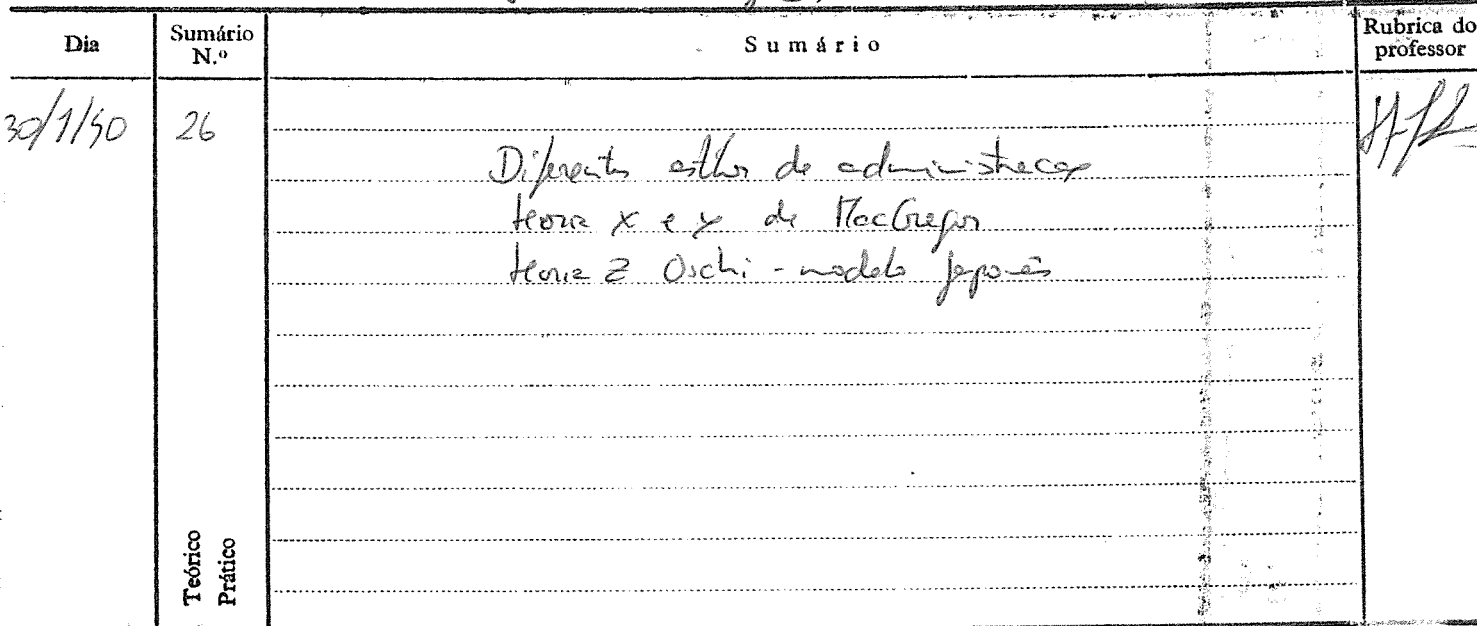 Dia
Sumário N.º
Sumário
Rubrica do professor
30/1/90
26
Diferentes estilos de administração
teoria x e y de MacGregor
teoria Z Oschi - modelo japonês
Teórico
Prático